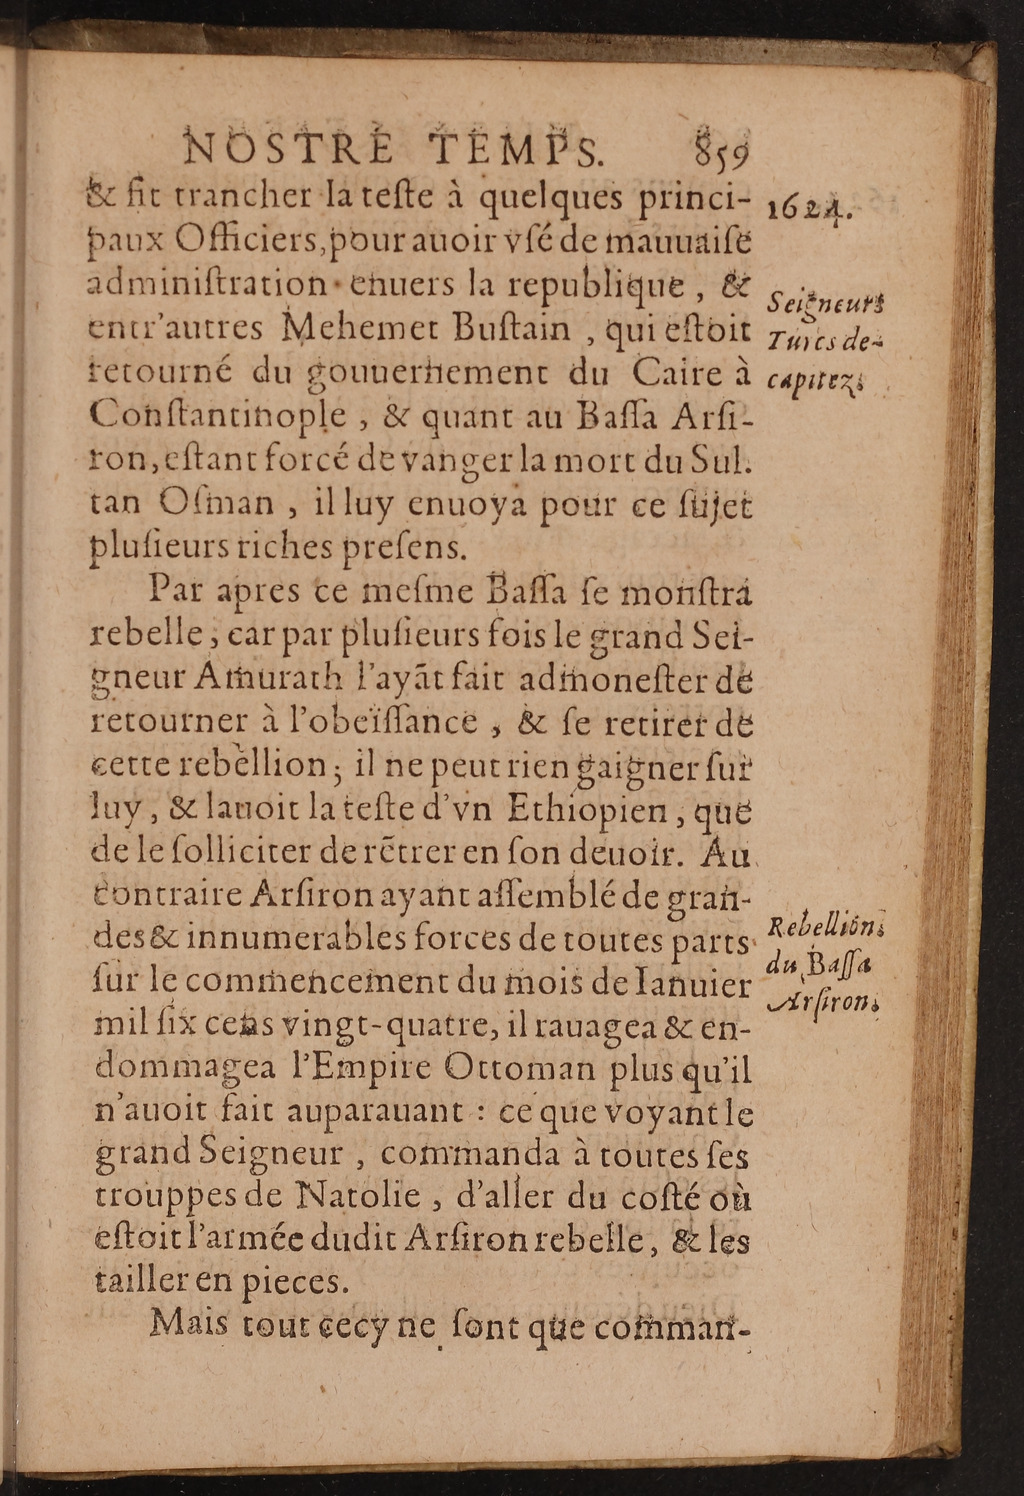 NOSTRE TEMPS. 859
& fit trancher la teſte à quelques princi-
paux Officiers, pour auoir vſé de mauuaiſe
adminiſtration enuers la republique, &
entr'autres Mehemet Buſtain, qui eſtoit
retourné du gouuernement du Caire à
Conſtantinople, & quant au Baſſa Arſi-
ron, eſtant forcé de vanger la mort du Sul.
tan Oſman, il luy enuoya pour ce ſujet
pluſieurs riches preſens.
1624.
Seigneurs
Turcs de-
capitez.
Par apres ce meſme Baſſa ſe monſtra
rebelle, car par pluſieurs fois le grand Sei-
gneur Amurath l'ayāt fait admoneſter de
retourner à l'obeïſſance, & ſe retirer de
cette rebellion; il ne peut rien gaigner ſur
luy, & lauoit la teſte d'vn Ethiopien, que
de le ſolliciter de rētrer en ſon deuoir. Au
contraire Arſiron ayant aſſemblé de gran-
des & innumerables forces de toutes parts
ſur le commencement du mois de Ianuier
mil ſix cens vingt-quatre, il rauagea & en-
dommagea l'Empire Ottoman plus qu'il
n'auoit fait auparauant : ce que voyant le
grand Seigneur, commanda à toutes ſes
trouppes de Natolie, d'aller du coſté où
eſtoit l'armée dudit Arſiron rebelle, & les
tailler en pieces.
Rebellion
du Baſſa
Arſiron.
Mais tout cecy ne ſont que comman-